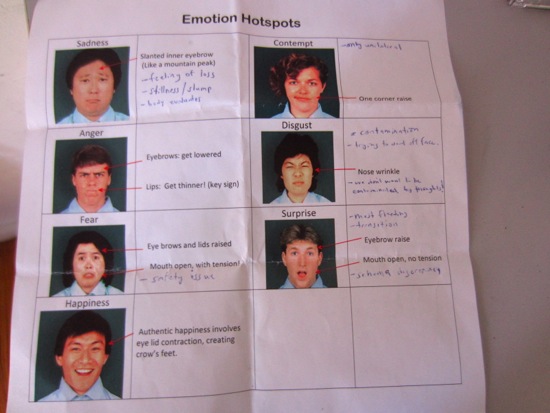 Emotion Hotspots
Sadness
Slanted inner eyebrow
(Like a mountain peak)
- feeling of loss
- stillness/slump
- body
Contempt
- only unilateral
One corner raise
Anger
Eyebrows: get lowered
Lips: Get thinner! (key sign)
Disgust
contamination
- trying to
Nose wrinkle
- we don't want to be
contaminated by thoughts!
Fear
Eye brows and lids raised
Mouth open, with tension!
- safety issue
Surprise
- most fleeting
- transition
Eyebrow raise
Mouth open, no tension
- schema discrepancy
Happiness
Authentic happiness involves
eye lid contraction, creating
crow's feet.